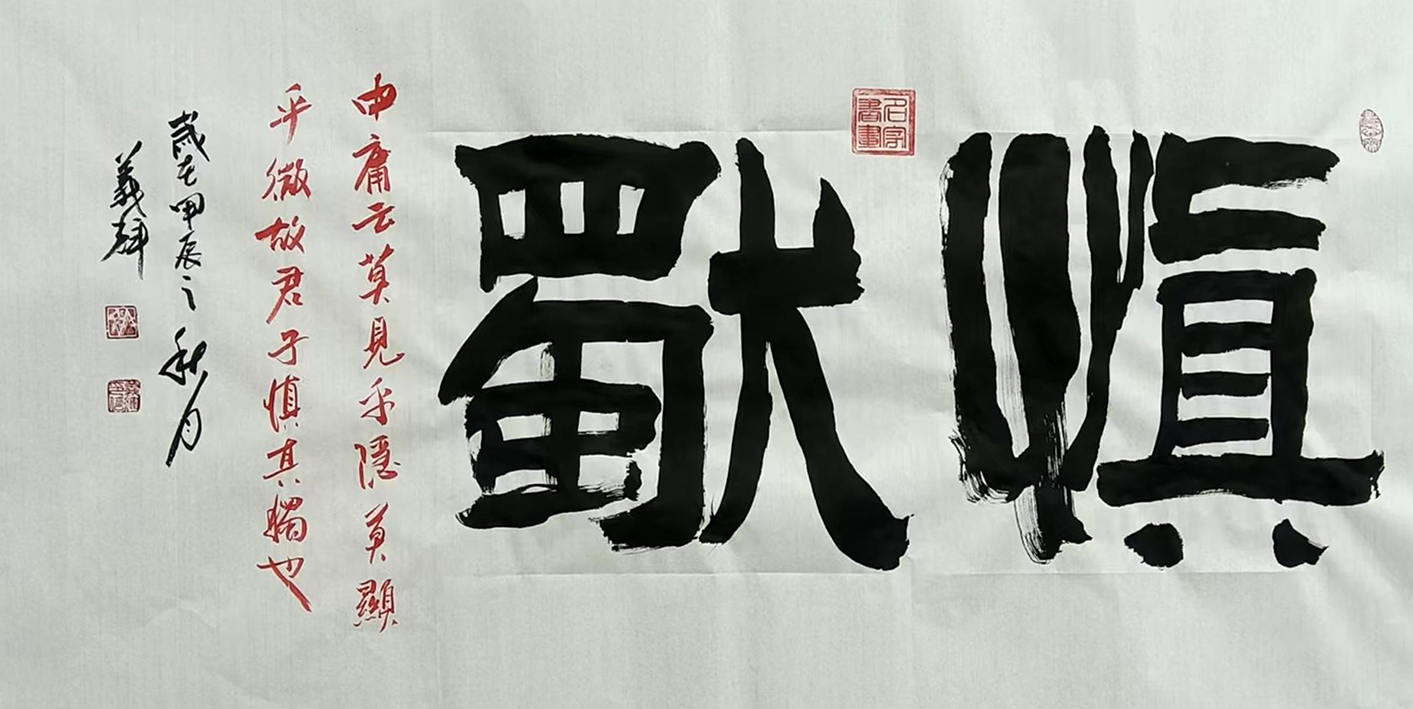 慎獨
中庸云莫見乎隱莫顯
乎微故君子慎其獨也
歲在甲辰之秋月
義輝
名字書畫